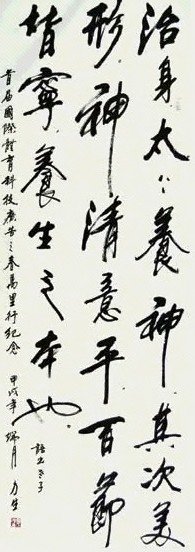 治身太上養神其次美
形神清意平百節
皆寧養生之本也
語出文子
首屆國際體育科技廣告之春萬里行紀念
甲戌年端月力生